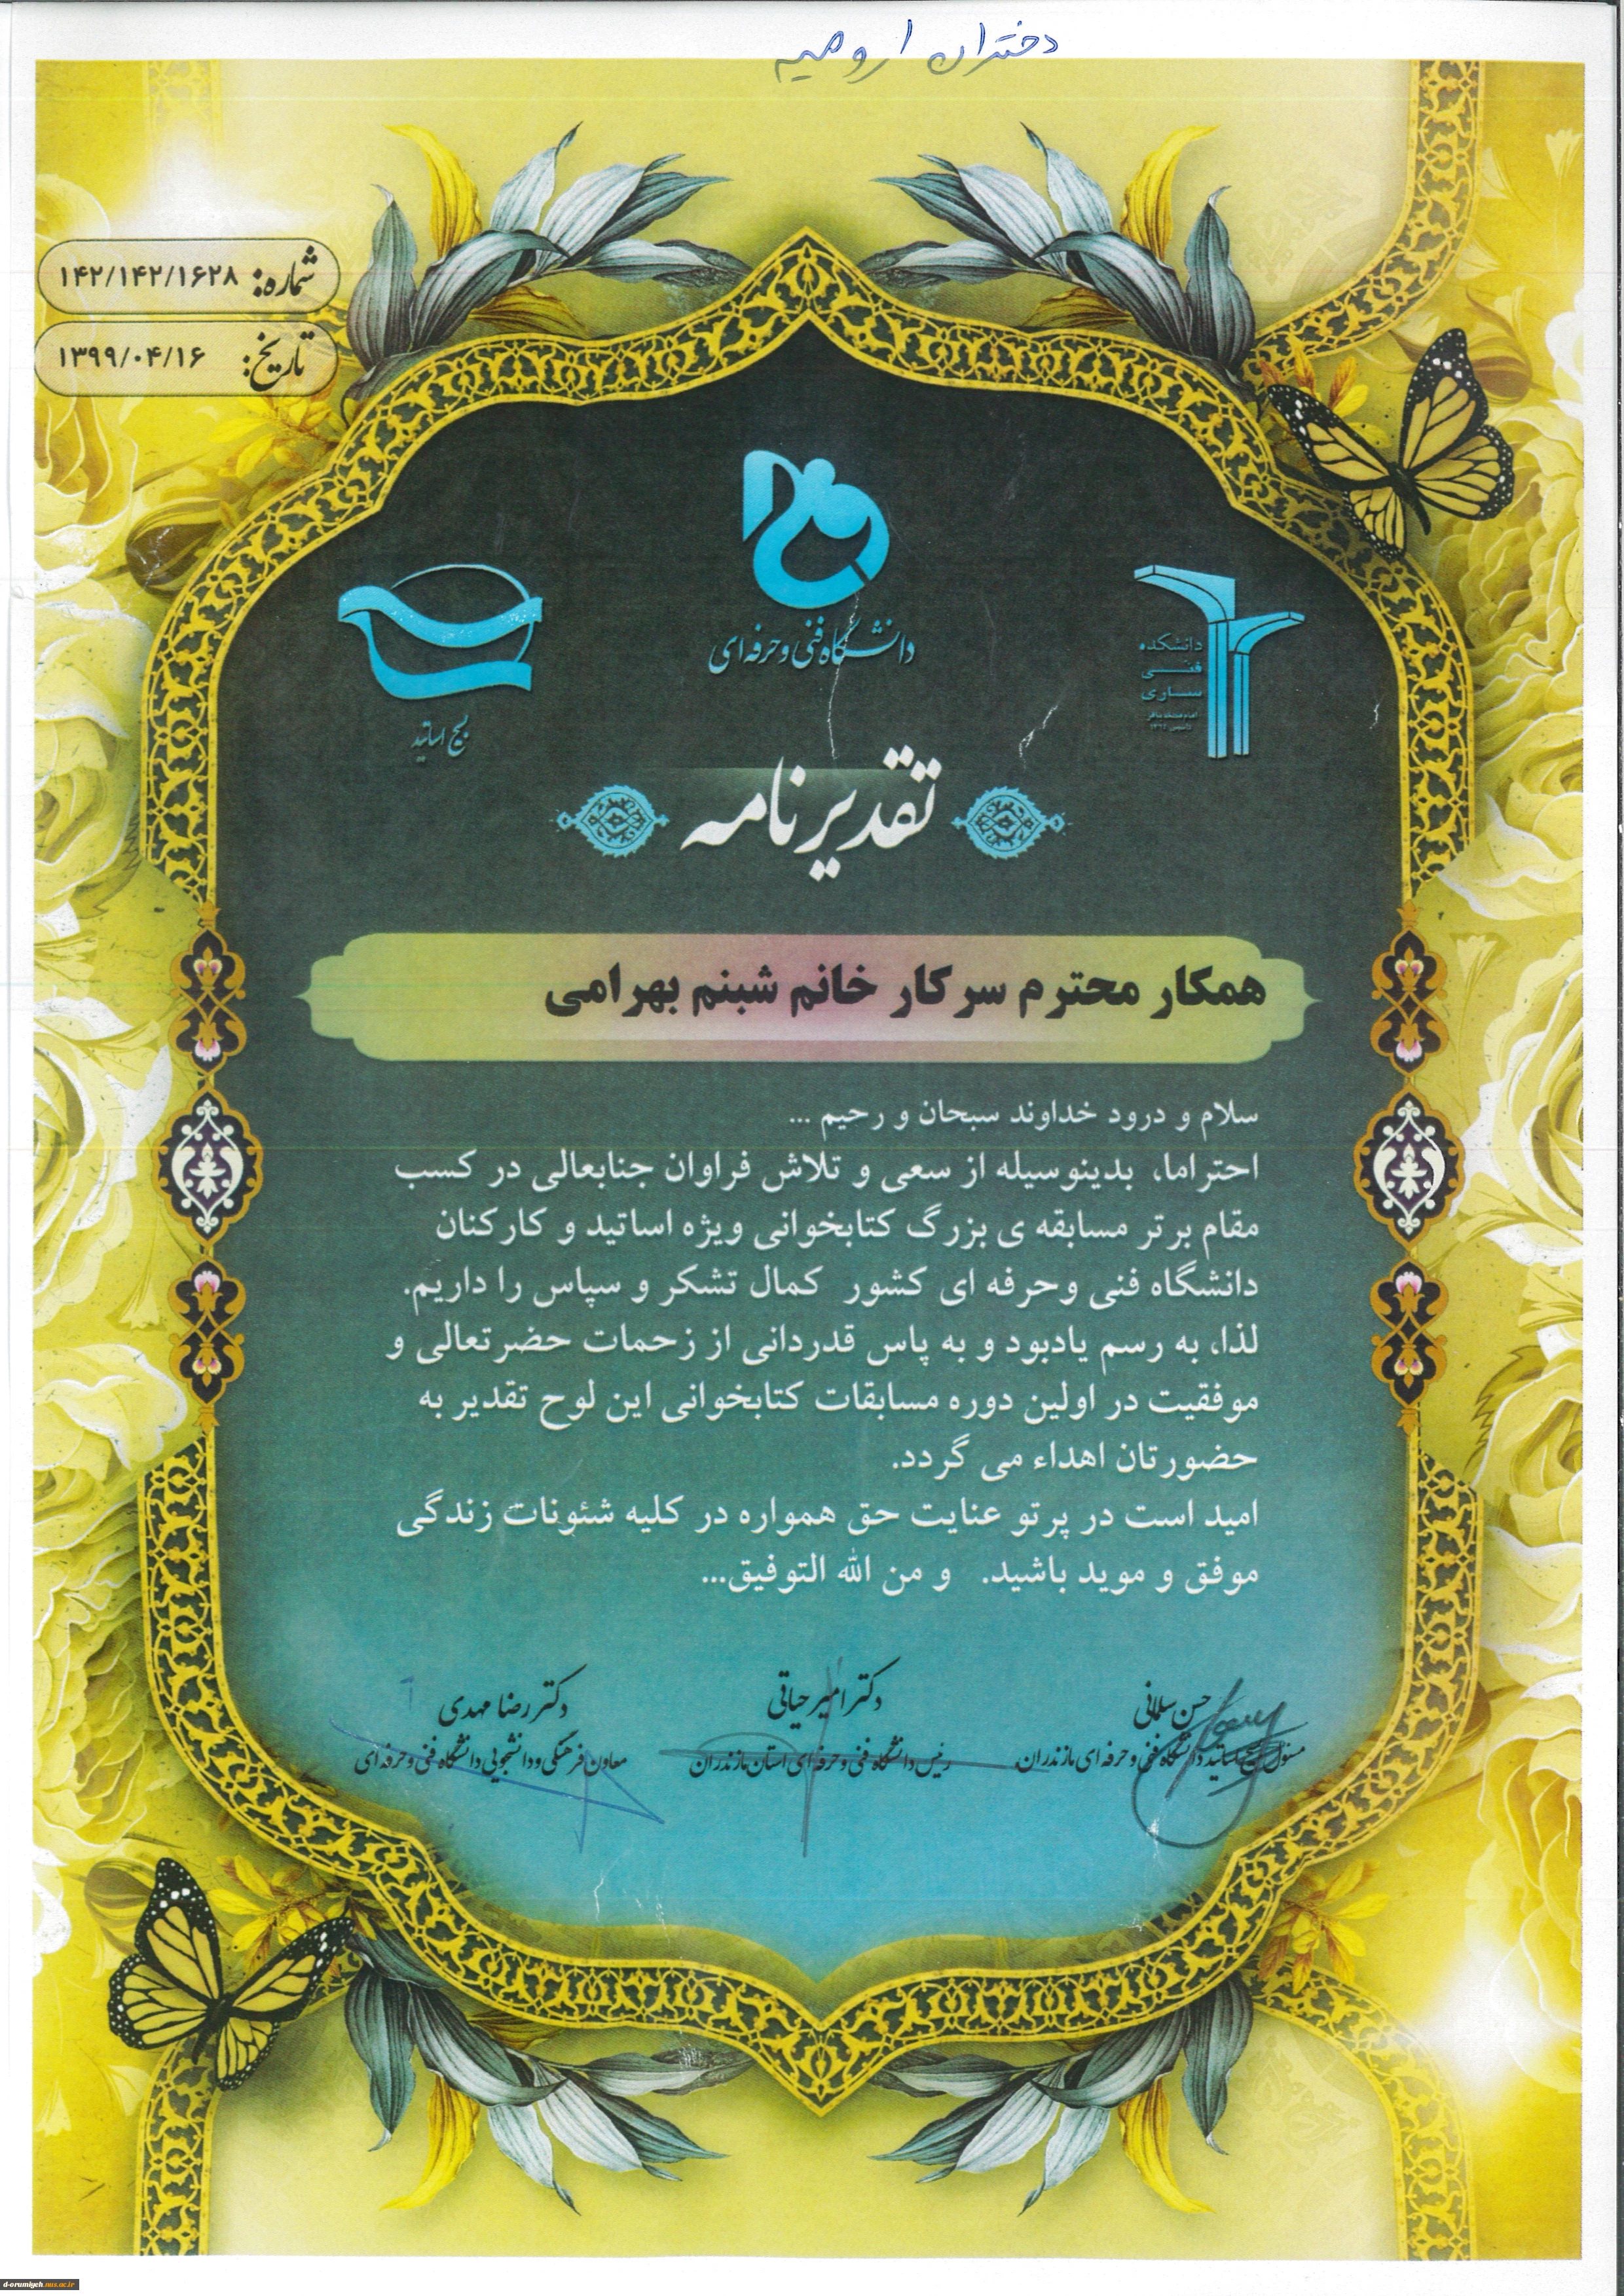 دختران ارومیه
شماره: ۱۴۲/۱۴۲/۱۶۲۸
تاریخ: ۱۳۹۹/۰۴/۱۶
دانشگاه فنی و حرفه ای
دانشکده
فنی
ساری
بسیج اساتید
تقدیرنامه
همکار محترم سرکار خانم شبنم بهرامی
سلام و درود خداوند سبحان و رحیم ...
احتراما، بدینوسیله از سعی و تلاش فراوان جنابعالی در کسب
مقام برتر مسابقه ی بزرگ کتابخوانی ویژه اساتید و کارکنان
دانشگاه فنی وحرفه ای کشور کمال تشکر و سپاس را داریم.
لذا، به رسم یادبود و به پاس قدردانی از زحمات حضرتعالی و
موفقیت در اولین دوره مسابقات کتابخوانی این لوح تقدیر به
حضورتان اهداء می گردد.
امید است در پرتو عنایت حق همواره در کلیه شئونات زندگی
موفق و موید باشید. و من الله التوفیق...
حسن سلمانی
مسئول بسیج اساتید دانشگاه فنی و حرفه ای مازندران
دکتر امیر حیاتی
رئیس دانشگاه فنی و حرفه ای استان مازندران
دکتر رضا مهدی
معاون فرهنگی و دانشجویی دانشگاه فنی و حرفه ای
d-orumiyeh.nus.ac.ir